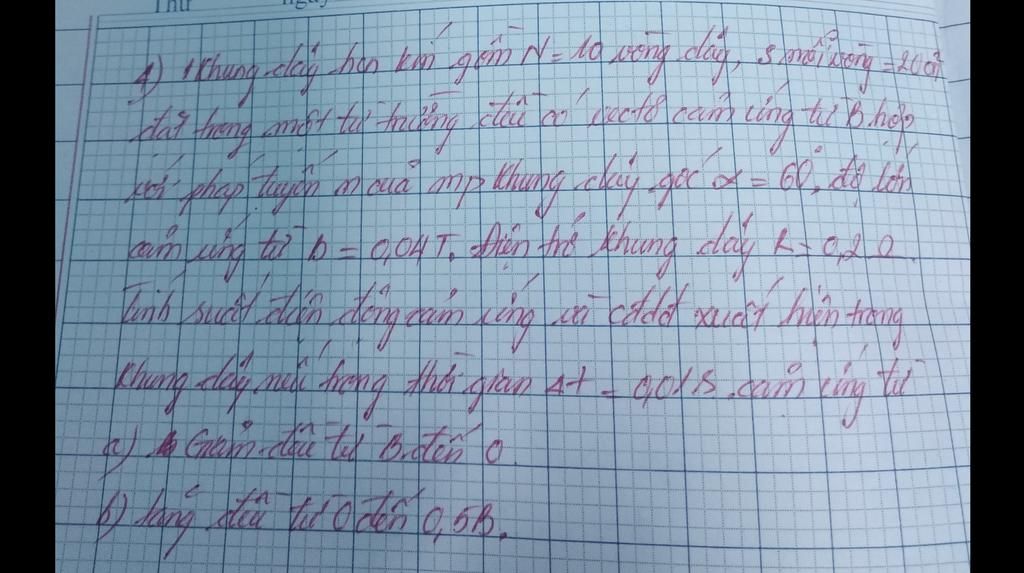 Thứ ngày
4) Khung dây hỡn kín gồm N = 10 vòng dây, S mỗi vòng = 20
đặt trong một từ trường đều có vectơ cảm ứng từ B hợp
với pháp tuyến n của mp khung dây góc α = 60°, độ lớn
cảm ứng từ B = 0,04T. Điện trở khung dây R = 0,2 Ω.
Tính suất điện động cảm ứng và cđdđ xuất hiện trong
khung dây nếu trong thời gian Δt = 0,01s. cảm ứng từ
a) Giảm đều từ B đến 0.
b) tăng đều từ 0 đến 0,5B.